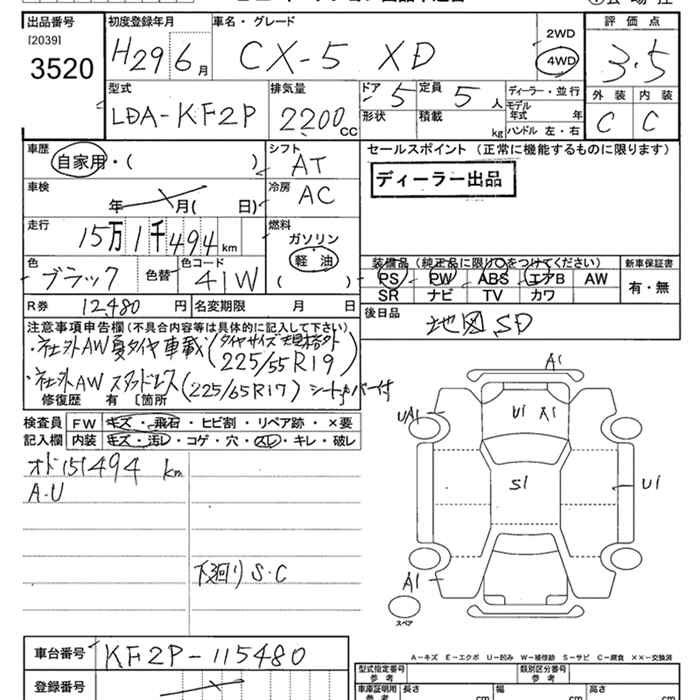 出品番号 初度登録年月 車名・グレード 2WD 評価点
[2039] H29 6月 CX-5 XD 4WD 3.5
3520
型式 排気量 ドア 定員 ディーラー・並行 外装 内装
LDA-KF2P 2200cc 5 5人 モデル年式 年 C C
形状 積載 kg ハンドル 左・右
車歴 シフト セールスポイント (正常に機能するものに限ります)
自家用・( ) AT ディーラー出品
車検 冷房
年 月( 日) AC
走行 燃料
15万1千494km ガソリン
軽油
色 色替 色コード 装備品 (純正品に限り○をつけてください) 新車保証書
ブラック 41W ( ) PS PW ABS エアB AW 有・無
SR ナビ TV カワ
R券 12,480円 名変期限 月 日 後日品
地図SD
注意事項申告欄(不具合内容等は具体的に記入して下さい)
・社外AW夏タイヤ車載(タイヤサイズ規格外 225/55R19)
・社外AWスタッドレス(225/65R17) シートカバー付
修復歴 有 〔箇所
検査員 FW キズ・飛石・ヒビ割・リペア跡・×要
記入欄 内装 キズ・汚レ・コゲ・穴・スレ・キレ・破レ
オド151494km
A-U
下廻りS.C
A1
UA1 U1 A1
S1 U1
A1
スペア
A-キズ E-エクボ U-凹み W-補修跡 S-サビ C-腐食 ××-交換済
車台番号 KF2P-115480
型式指定番号 参考 類別区分番号 参考
登録番号 車庫証明用 参考 長さ cm 幅 cm 高さ cm